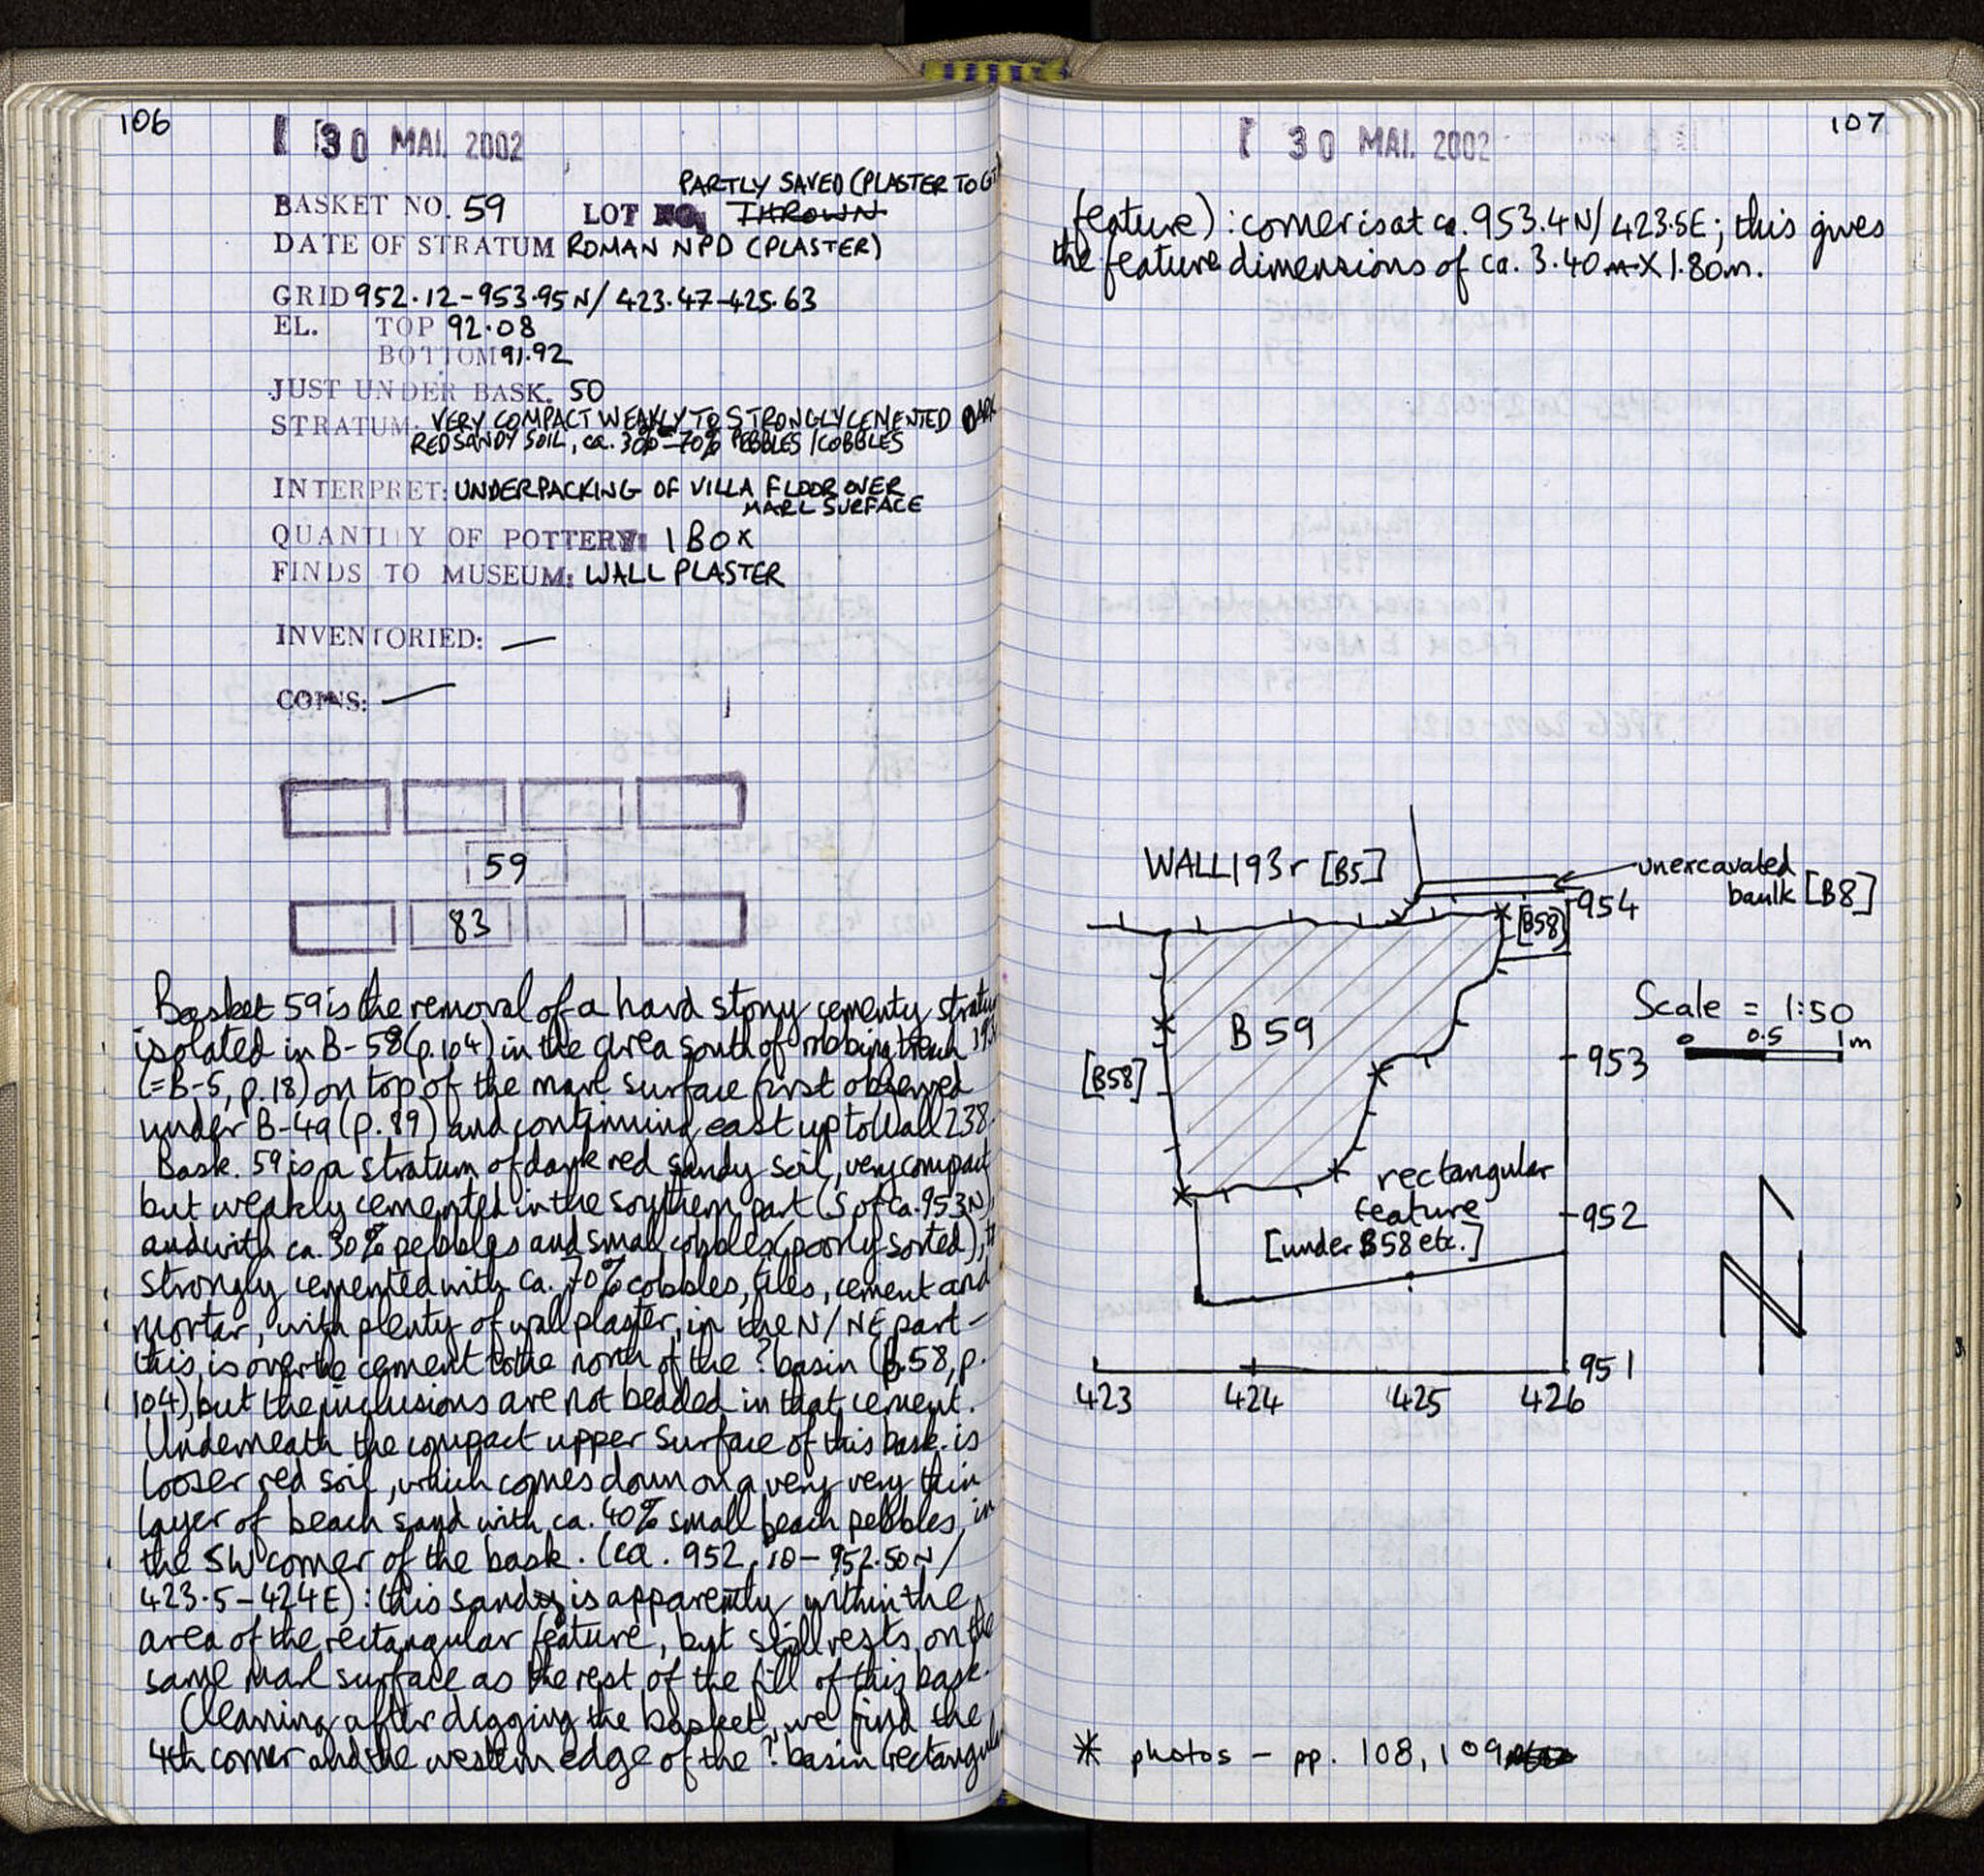 106
30 MAI. 2002
PARTLY SAVED (PLASTER TO
BASKET NO. 59 LOT NO. THROWN
DATE OF STRATUM ROMAN NPD (PLASTER)
GRID 952.12-953.95N/ 423.47-425.63
EL. TOP 92.08
BOTTOM 91.92
JUST UNDER BASK. 50
STRATUM: VERY COMPACT WEAKLY TO STRONGLY CEMENTED DARK
RED SANDY SOIL, ca. 30%-70% PEBBLES/COBBLES
INTERPRET: UNDERPACKING OF VILLA FLOOR OVER
MARL SURFACE
QUANTITY OF POTTERY: 1 BOX
FINDS TO MUSEUM: WALL PLASTER
INVENTORIED: —
COINS: —
59
83
Basket 59 is the removal of a hard stony cementy
isolated in B-58 (p.104) in the area south of robbing trench
(=B-5, p.18) on top of the marl surface first observed
under B-49 (p.89) and continuing east up to Wall 238.
Bask. 59 is a stratum of dark red sandy soil, very compact
but weakly cemented in the southern part (S of ca. 953N)
and with ca. 30% pebbles and small cobbles (poorly sorted),
strongly cemented with ca. 70% cobbles, tiles, cement and
mortar, with plenty of wall plaster, in the N/NE part –
this is over the cement to the north of the ? basin (B.58, p.
104), but the inclusions are not beaded in that cement.
Underneath the compact upper surface of this bask. is
looser red soil, which comes down on a very very thin
layer of beach sand with ca. 40% small beach pebbles, in
the SW corner of the bask. (ca. 952.10–952.50N/
423.5–424E): this sand is apparently within the
area of the rectangular feature, but still rests on the
same marl surface as the rest of the fill of this bask.
Cleaning after digging the basket, we find the
4th corner and the western edge of the ? basin (rectangular
107
30 MAI. 2002
feature): corner is at ca. 953.4N/423.5E; this gives
the feature dimensions of ca. 3.40 m X 1.80m.
WALL 193r [B5]
unexcavated
baulk [B8]
954
[B58]
B 59
Scale = 1:50
0 0.5 1m
953
[B58]
rectangular
feature
[under B58 etc.]
952
N
951
423 424 425 426
* photos – pp. 108, 109